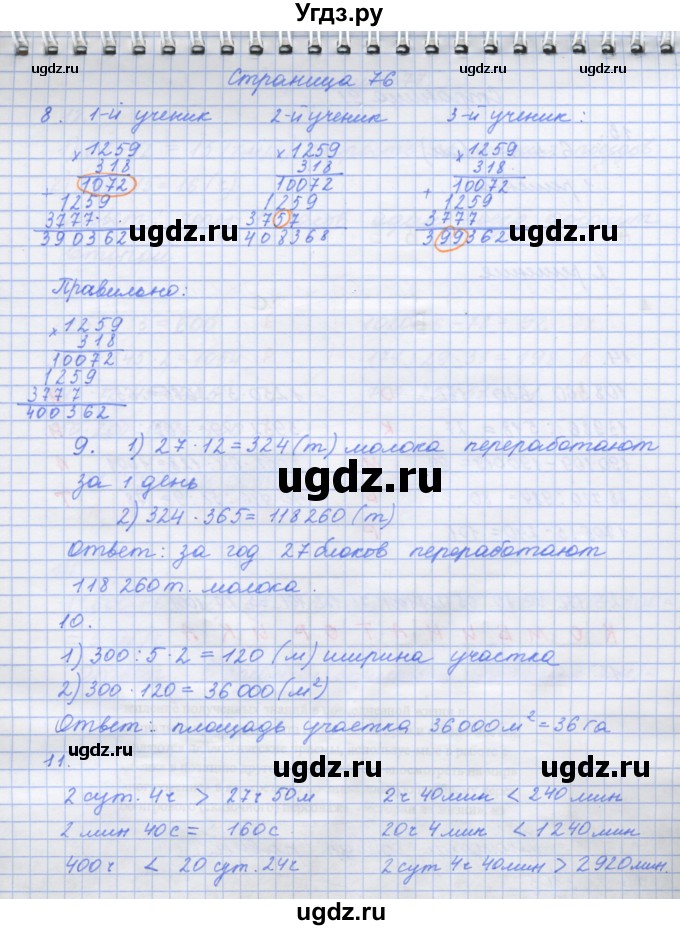 Угдз.ру
ugdz.ru ugdz.ru ugdz.ru
Страница 76
8. 1-й ученик 2-й ученик 3-й ученик:
×1259 ×1259 ×1259
318 318 318
+ 1072 10072 + 10072
1259 1259 1259
3777 3757 3777
390362 408368 399362
ugdz.ru ugdz.ru
Правильно:
×1259
318
10072
1259
3777
400362
ugdz.ru ugdz.ru ugdz.ru
9. 1) 27·12=324(т) молока переработают
за 1 день
ugdz.ru
2) 324·365=118260(т)
Ответ: за год 27 блоков переработают
118260т. молока.
ugdz.ru ugdz.ru
10.
1) 300:5·2=120(м) ширина участка
2) 300·120=36000(м²)
ugdz.ru ugdz.ru ugdz.ru
Ответ: площадь участка 36000м²=36га
11.
2 сут. 4ч > 27ч 50м 2ч 40мин < 240мин
2 мин 40с = 160с 20ч 4мин < 1240мин
ugdz.ru ugdz.ru
400ч < 20 сут. 24ч 2 сут 4ч 40мин > 2920мин.
ugdz.ru